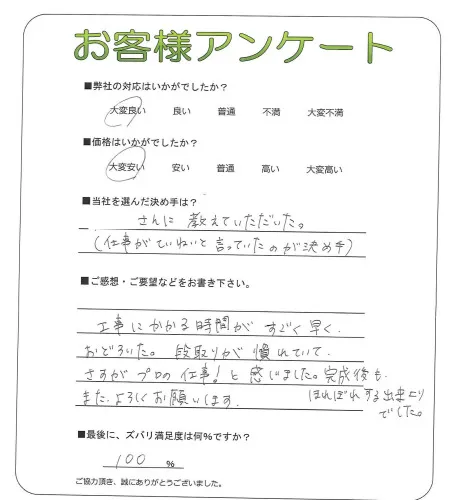 お客様アンケート
■弊社の対応はいかがでしたか？
大変良い 良い 普通 不満 大変不満
■価格はいかがでしたか？
大変安い 安い 普通 高い 大変高い
■当社を選んだ決め手は？
さんに 教えていただいた。
(仕事がていねいと言っていたのが決め手)
■ご感想・ご要望などをお書き下さい。
工事にかかる時間が すごく早く、
おどろいた。段取りが 慣れていて、
さすが プロの仕事！と 感じました。完成後も、
ほれぼれする出来上り
でした。
また、よろしくお願いします。
■最後に、ズバリ満足度は何％ですか？
100 %
ご協力頂き、誠にありがとうございました。